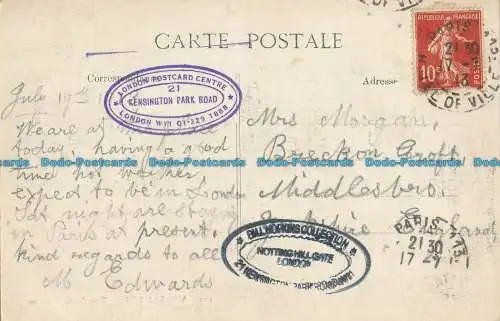 CARTE POSTALE
Correspon
Adresse
RÉPUBLIQUE FRANÇAISE
10c
PARIS
21 30
E OF VILL
LONDON POSTCARD CENTRE
21
KENSINGTON PARK ROAD
LONDON W11 01-229 1888
July 17th
We are at
today, having a good
time hot weather
exped to be in London
Sat night are staying
in Paris at present.
Kind regards to all
M Edwards
Mrs Morgan,
Breckon Croft
Middlesbro.
Yorkshire England
BILL HOPKINS COLLECTION
NOTTING HILL GATE
LONDON
21 KENSINGTON PARK ROAD W11
PARIS
21 30
17 -7
Dodo-Postcards Dodo-Postcards Dodo-Postcards Dodo-Postcards Dodo-Postcards